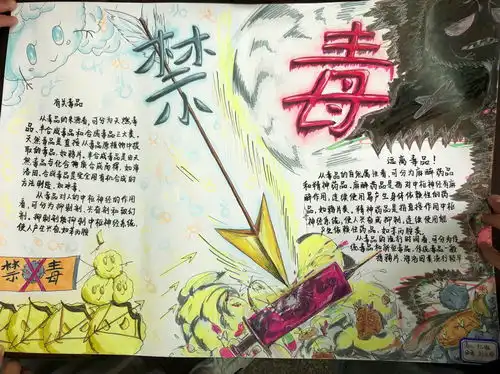 禁
毒
有关毒品
从毒品的来源看,可分为天然毒
品、半合成毒品和合成毒品三大类,
天然毒品是直接从毒品原植物中提
取的毒品,如鸦片,半合成毒品是由天
然毒品与化学物质合成而得,如海
洛因,合成毒品是完全用有机合成的
方法制造,如冰毒。
从毒品对人的中枢神经的作用
看,可分为抑制剂、兴奋剂和致幻
剂,抑制剂能抑制中枢神经系统,
使人产生兴奋,如苯丙胺
禁 毒
远离毒品!
从毒品的自然属性看,可分为麻醉药品
和精神药品,麻醉药品是指对中枢神经有麻
醉作用,连续使用易产生身体依赖性的药
品,如鸦片类,精神药品是指直接作用中枢
神经系统,使人兴奋或抑制,连续使用能
产生依赖性药品,如苯丙胺类。
从毒品的流行时间看,可分为传
统毒品和新型毒品,传统毒品一般
指鸦片、海洛因